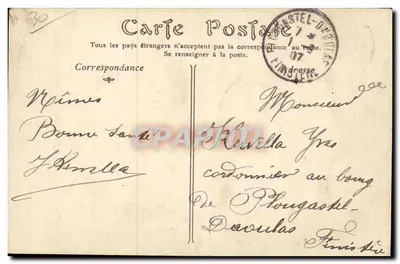 30
Carte Postale
Tous les pays étrangers n'acceptent pas la correspondance au recto.
Se renseigner à la poste.
PLOUGASTEL-DAOULAS
7
07
FINISTÈRE
Correspondance
Adresse
Nîmes
Bonne santé
Monsieur
Kervella Yves
cordonnier au bourg
de Plougastel-
Daoulas
Finistère